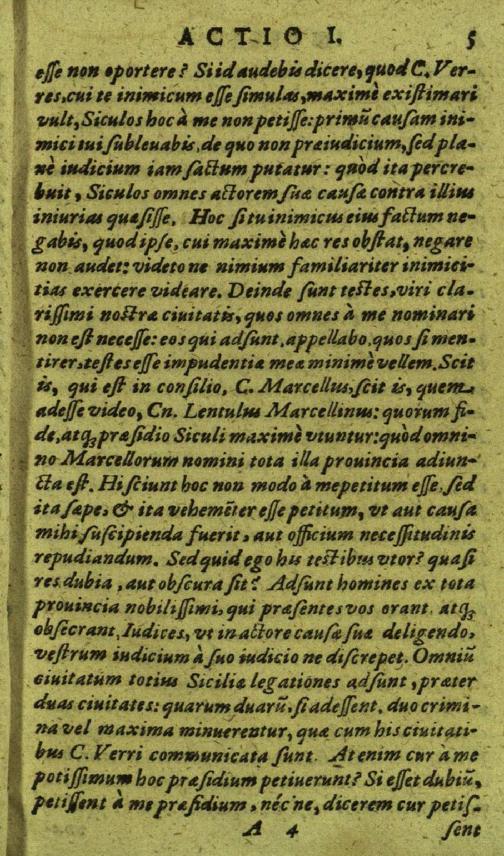 ACTIO I. 5
esse non oportere? Si id audebis dicere, quod C. Ver-
res, cui te inimicum esse simulas, maximè existimari
vult, Siculos hoc à me non petisse: primũ causam ini-
mici tui subleuabis, de quo non præiudicium, sed pla-
nè iudicium iam factum putatur: quòd ita percre-
buit, Siculos omnes actorem suæ causæ contra illius
iniurias quæsisse. Hoc si tu inimicus eius factum ne-
gabis, quod ipse, cui maximè hæc res obstat, negare
non audet: videto ne nimium familiariter inimici-
tias exercere videare. Deinde sunt testes, viri cla-
rissimi nostræ ciuitatis, quos omnes à me nominari
non est necesse: eos qui adsunt, appellabo. quos si men-
tirer, testes esse impudentiæ meæ minimè vellem. Scit
is, qui est in consilio, C. Marcellus, scit is, quem
adesse video, Cn. Lentulus Marcellinus: quorum fi-
de, atq; præsidio Siculi maximè vtuntur: quòd omni-
no Marcellorum nomini tota illa prouincia adiun-
cta est. Hi sciunt hoc non modo à me petitum esse, sed
ita sæpe, & ita vehemẽter esse petitum, vt aut causa
mihi suscipienda fuerit, aut officium necessitudinis
repudiandum. Sed quid ego his testibus vtor? quasi
res dubia, aut obscura sit? Adsunt homines ex tota
prouincia nobilissimi, qui præsentes vos orant, atq;
obsecrant, Iudices, vt in actore causæ suæ deligendo,
vestrum iudicium à suo iudicio ne discrepet. Omniũ
ciuitatum totius Siciliæ legationes adsunt, præter
duas ciuitates: quarum duarũ, si adessent, duo crimi-
na vel maxima minuerentur, quæ cum his ciuitati-
bus C. Verri communicata sunt. At enim cur à me
potissimum hoc præsidium petiuerunt? Si esset dubiũ,
petissent à me præsidium, nécne, dicerem cur petis-
A 4 sent